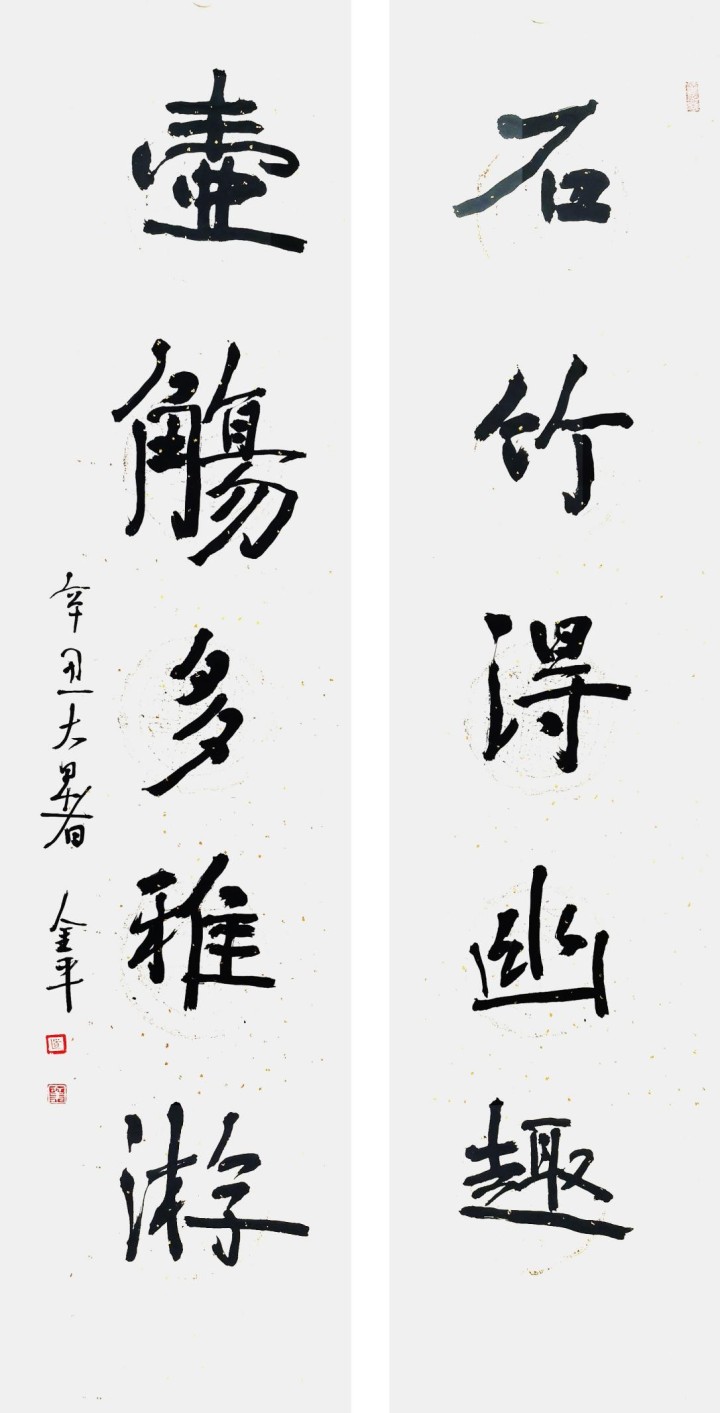 石竹得幽趣
壶觞多雅游
辛丑大暑 金平